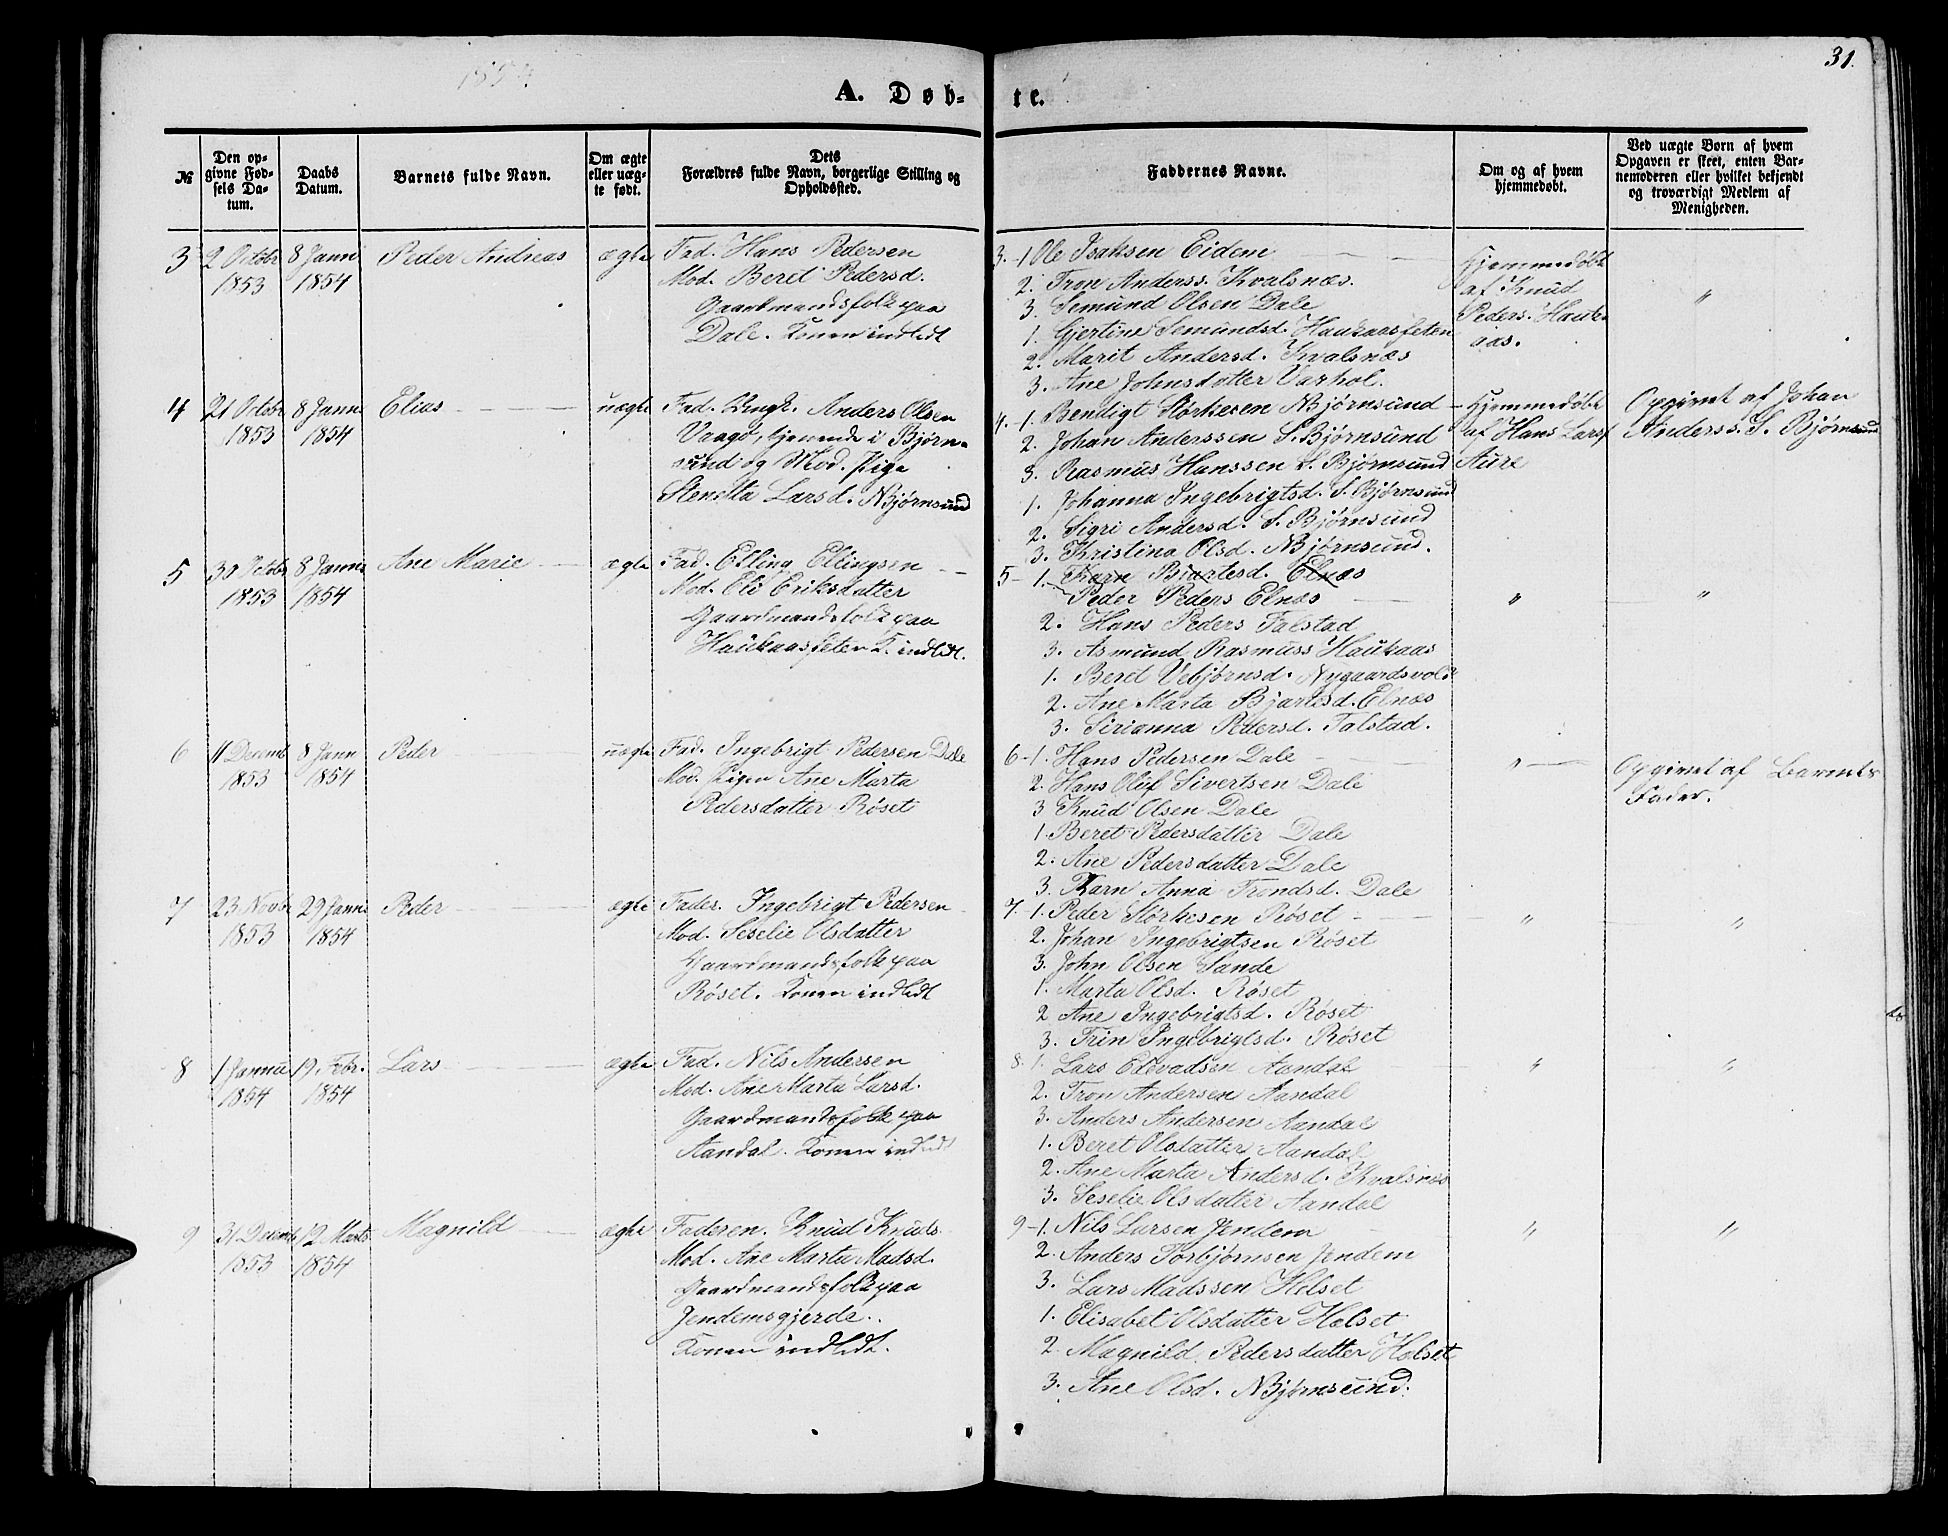 1854.
31.
A. Døb-
te.
№
Den op-
givne Fød-
sels Da-
tum.
Daabs
Datum.
Barnets fulde Navn.
Om ægte
eller uæg-
te født.
Dets
Forældres fulde Navn, borgerlige Stilling og
Opholdssted.
Faddernes Navne.
Om og af hvem
hjemmedøbt.
Ved uægte Børn af hvem
Opgaven er skeet, enten Bar-
nemoderen eller hvilket bekjendt
og troværdigt Medlem af
Menigheden.
3
2 Octobr
1853
8 Janu
1854
Peder Andreas
ægte
Fad. Hans Pedersen
Mod. Beret Pedersd.
Gaardmandsfolk paa
Dale. Konen indledt
3. - 1 Ole Isaksen Eidem
2. Tron Anderss. Kvalsnæs.
3. Semund Olsen Dale
1. Gjertine Semundsd. Haukaassæten
2. Marit Andersd. Kvalsnæs
3. Ane Johnsdatter Varhol.
Hjemmedøbt
af Knud
Peders. Hauk-
aas.
"
4
21 Octobr
1853
8 Janu
1854
Elias
uægte
Fad. Ungk. Anders Olsen
Vaagø, tjenende i Bjørn-
sund og Mod. Pige
Stenetta Larsd. NBjørnsund
4. - 1. Bendigt Størkesen NBjørnsund
2. Johan Anderssen S. Bjørnsund
3. Rasmus Hanssen S. Bjørnsund
1. Johanna Ingebrigtsd. S. Bjørnsund
2. Sigri Andersd. S. Bjørnsund
3. Kristina Olsd. NBjørnsund.
Hjemmedøbt
af Hans Larss
Aure
Opgivet af Johan
Anderss. S. Bjørnsund
5
30 Octobr
1853
8 Janu
1854
Ane Marie
ægte
Fad. Elling Ellingsen
Mod. Eli Eriksdatter
Gaardmandsfolk paa
Haukaassæten K. indledt.
5 - 1. Karn Bjartesd. Elnæs
Peder Peders Elnæs
2. Hans Peders Talstad
3. Asmund Rasmuss Haukaas
1. Beret Vebjørnsd. Nygaardsvold
2. Ane Marta Bjartesd. Elnæs
3. Sirianna Pedersd. Talstad.
"
"
6
11 Decemb
1853
8 Janu
1854
Peder
uægte
Fad. Ingebrigt Pedersen Dale
Mod. Pigen Ane Marta
Pedersdatter Røset
6 - 1. Hans Pedersen Dale
2. Hans Oluf Sivertsen Dale
3 Knud Olsen Dale
1. Beret Pedersdatter Dale
2. Ane Pedersdatter Dale
3. Karn Anna Trondsd. Dale
"
Opgivet af Barnets
Fader.
7
23 Novbr
1853
29 Janu
1854
Peder
ægte
Fader. Ingebrigt Pedersen
Mod. Seselie Olsdatter
Gaardmandsfolk paa
Røset. Konen indledt
7. - 1. Peder Størkesen Røset
2. Johan Ingebrigtsen Røset
3. John Olsen Sande
1. Marta Olsd. Røset
2 Ane Ingebrigtsd. Røset
3. Trin Ingebrigtsd. Røset
"
"
8
1 Janua
1854
19 Febr.
1854
Lars
ægte
Fad. Nils Andersen
Mod. Ane Marta Larsd.
Gaardmandsfolk paa
Aandal. Konen indledt
8. 1. Lars Edevadsen Aandal
2. Tron Andersen Aandal
3. Anders Andersen Aandal
1. Beret Olsdatter Aandal
2. Ane Marta Andersd. Kvalsnæs
3. Seselie Olsdatter Aandal
"
"
9
31 Decemb
1853
12 Marts
1854
Magnild
ægte
Faderen. Knud Knuds.
Mod. Ane Marta Madsd.
Gaardmandsfolk paa
Jendemsgjerde.
Konen indledt.
9 - 1. Nils Larsen Jendem
2. Anders Torbjørnsen Jendem
3. Lars Madssen Holset
1. Elisabet Olsdatter Holset
2. Magnild Pedersdatter Holset
3. Ane Olsd. NBjørnsund.
"
"